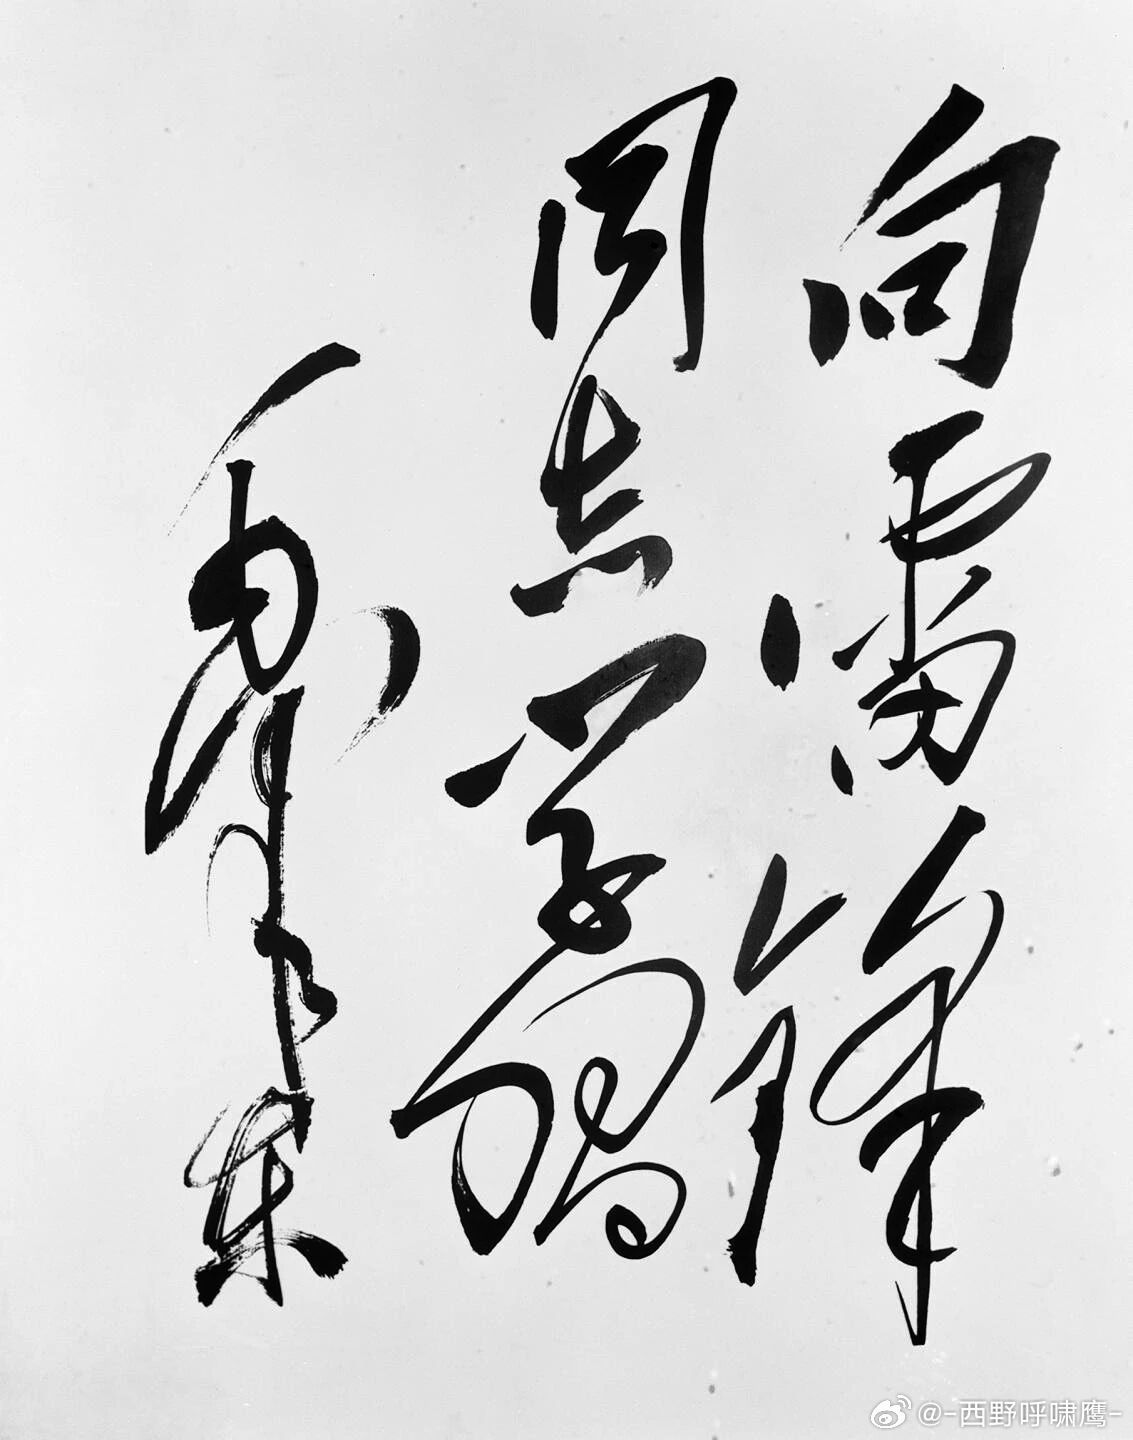 向雷锋
同志学习
毛泽东
@-西野呼啸鹰-